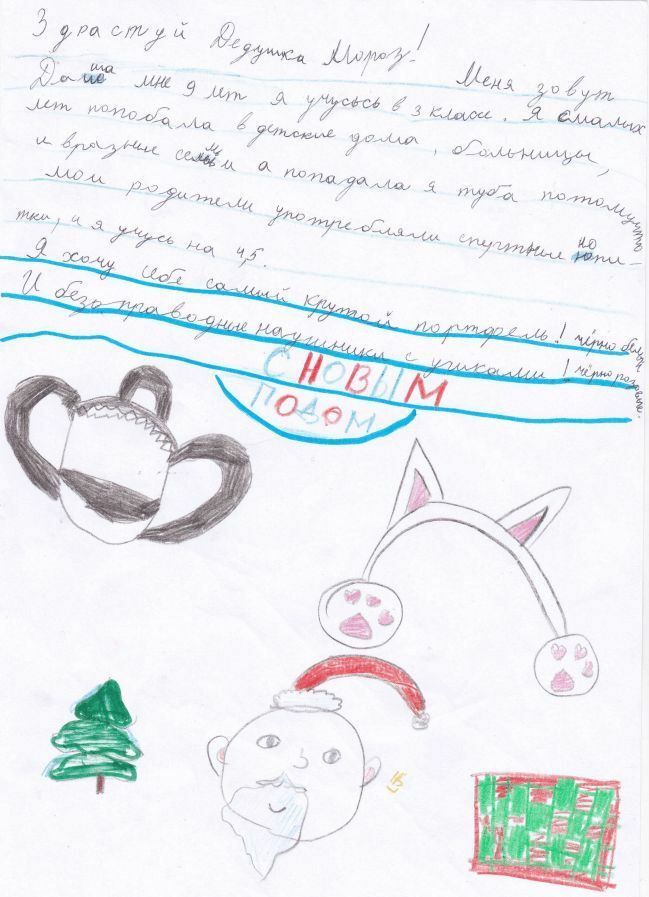 Здраствуй Дедушка Мороз!
Меня зовут
Даша мне 9 лет я учусьсь в 3 класе. Я смалых
лет попобала в детские дома, больницы,
и вразные семьи а попадала я туба потомучто
мои родители употребляли спертные напи-
тки, и я учусь на 4,5.
Я хочу себе самый крутой портфель! чёрно белый
И безз праводные наушники с ушками! чёрно розовые.
С НОВЫМ
ГОДОМ